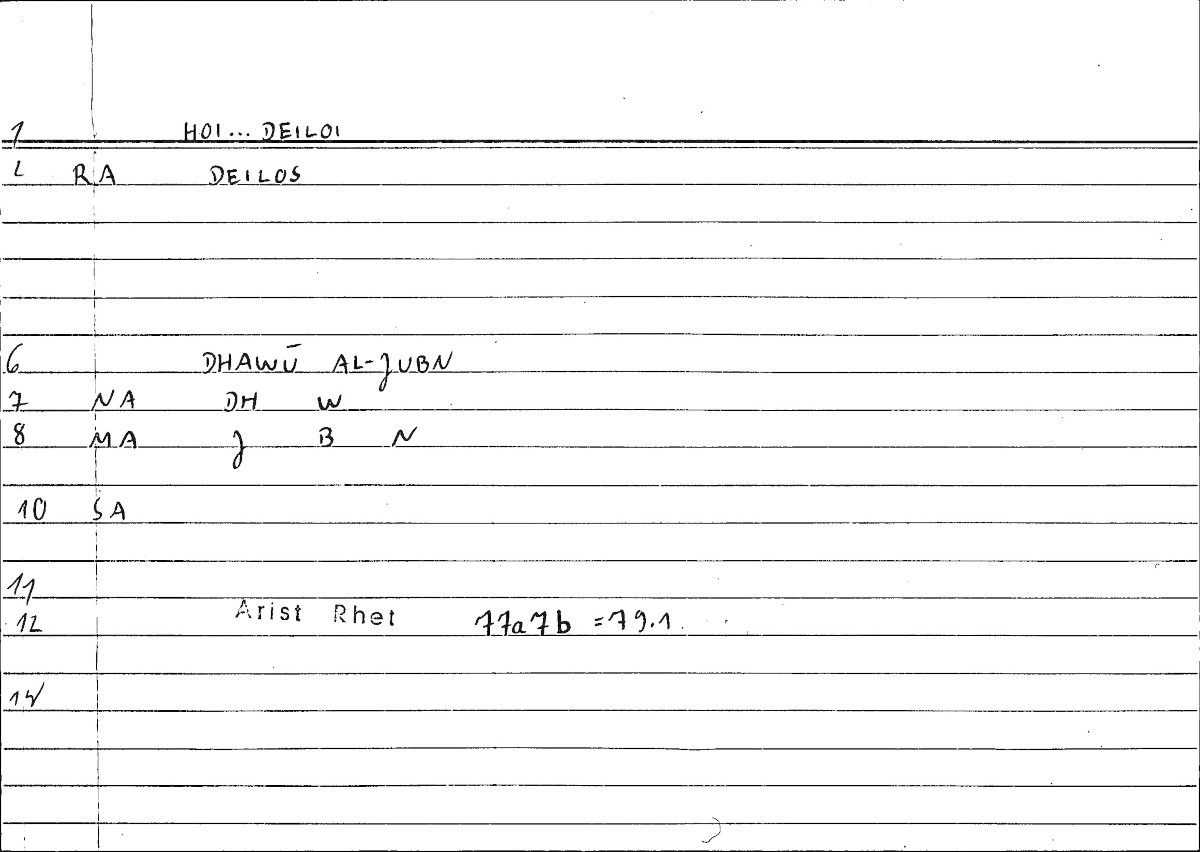 1 HOI... DEILOI
2 RA DEILOS
6 DHAWŪ AL-JUBN
7 NA DH W
8 MA J B N
10 SA
11
12 Arist Rhet 77a7b =79.1
14